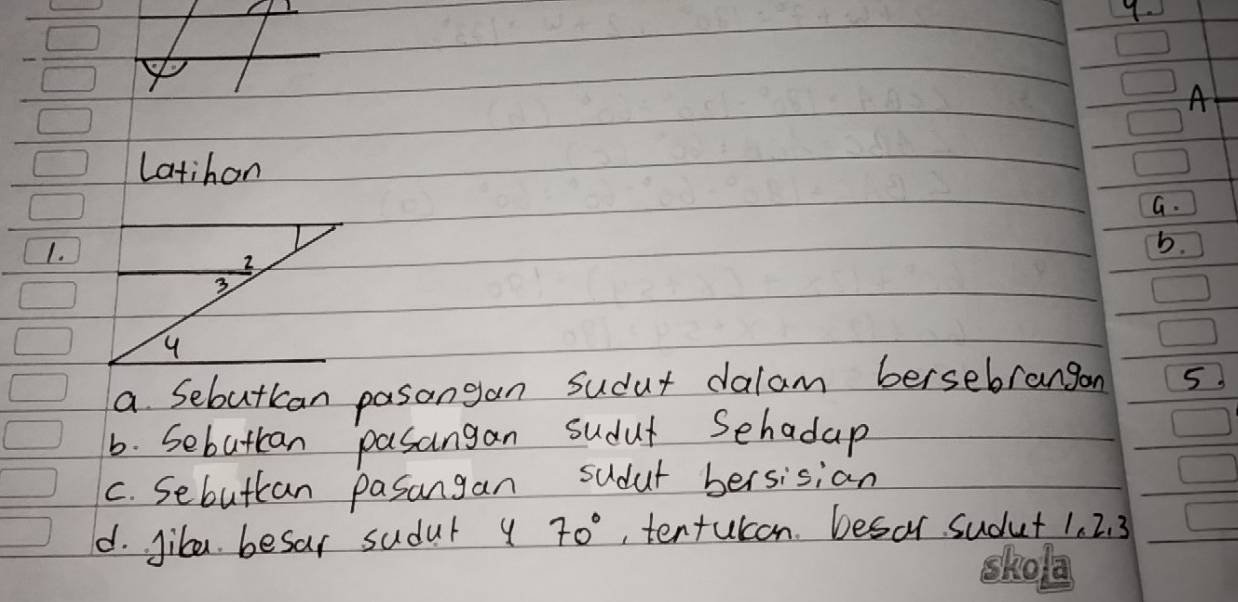 4.
A
Latihan
1.
2
3
4
a. Sebutkan pasangan sudut dalam bersebrangan
b. Sebutkan pasangan sudut Sehadap
c. Sebutkan pasangan sudut bersisian
d. Jika besar sudut 4 70°, tentukan. besar sudut 1.2.3
skola
a.
b.
5.